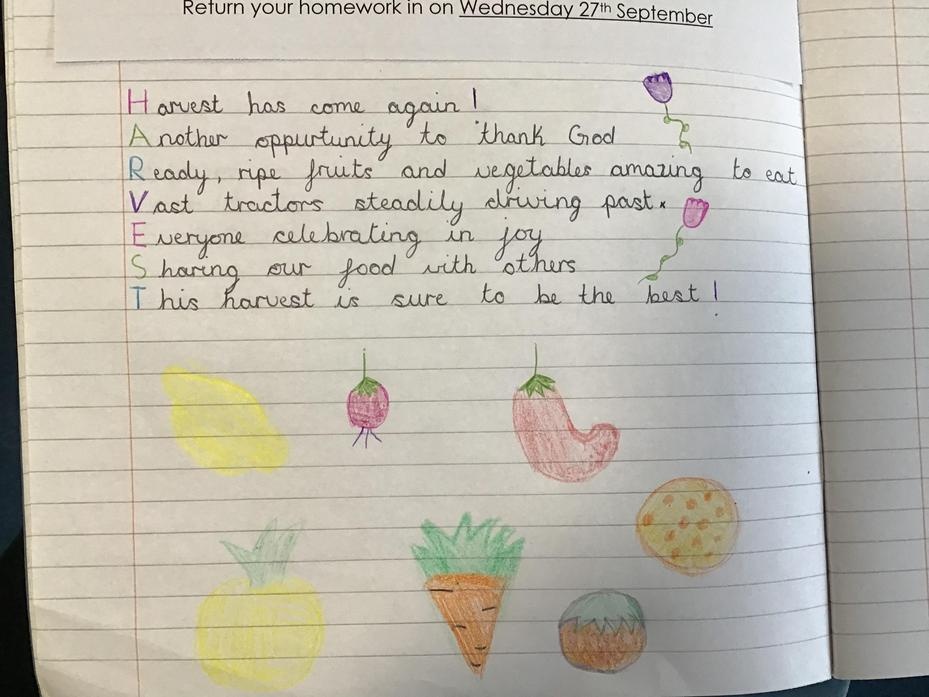 Return your homework in on Wednesday 27th September
Harvest has come again!
Another oppurtunity to thank God
Ready, ripe fruits and vegetables amazing to eat
Vast tractors steadily driving past.
Everyone celebrating in joy
Sharing our food with others
This harvest is sure to be the best!